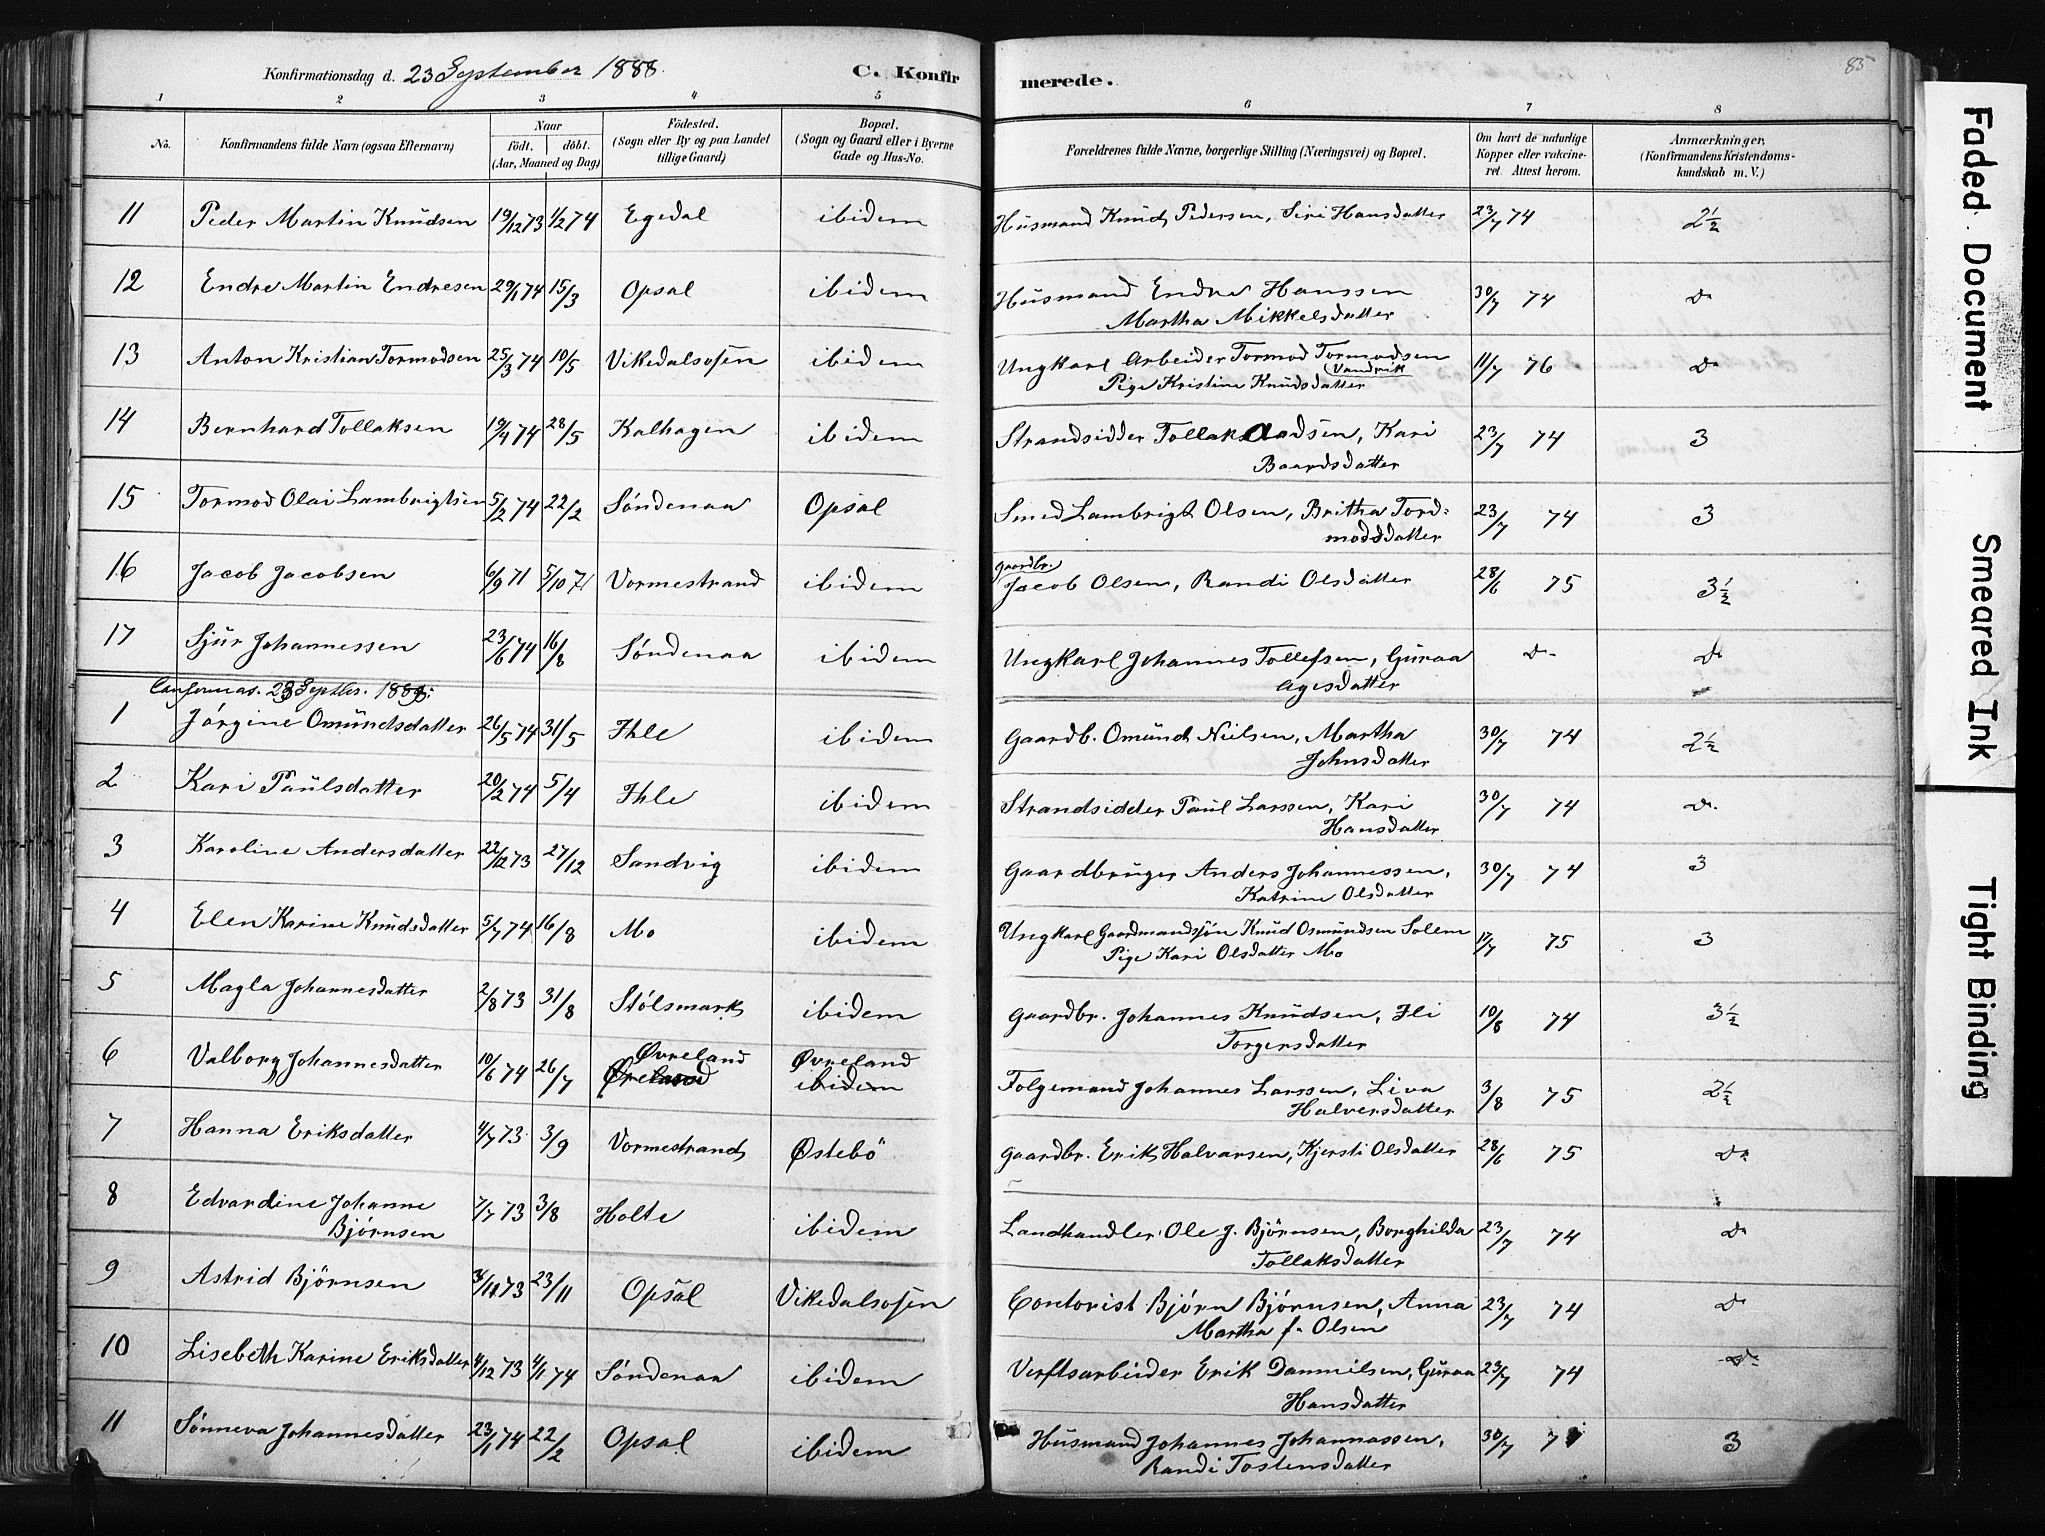 Konfirmationsdag d. 23 September 1888.
C. Konfirmerede.
85
1 2 3 4 5 6 7 8
No. Konfirmandens fulde Navn (ogsaa Efternavn) Naar födt. döbt. (Aar, Maaned og Dag) Födested. (Sogn eller By og paa Landet tillige Gaard) Bopæl. (Sogn og Gaard eller i Byerne Gade og Hus-No. Forældrenes fulde Navne, borgerlige Stilling (Næringsvei) og Bopæl. Om havt de naturlige Kopper eller vakcineret. Attest herom. Anmærkninger, (Konfirmandens Kristendomskundskab m. V.)
11 Peder Martin Knudsen 19/12 73 1/2 74 Egedal ibidem Husmand Knud Pedersen, Siri Hansdatter 23/7 74 2½
12 Endre Martin Endresen 29/1 74 15/3 Opsal ibidem Husmand Endre Hanssen 30/7 74 Do
Martha Mikkelsdatter
13 Anton Kristian Tormodsen 25/3 74 10/5 Vikedalsosen ibidem Ungkarl Arbeider Tormod Tormodsen 11/7 76 Do
(Vandvik
Pige Kristine Knudsdatter
14 Bernhard Tollaksen 19/4 74 28/5 Kalhagen ibidem Strandsidder Tollak Aadsen, Kari 23/7 74 3
Baardsdatter
15 Tormod Olai Lambrigtsen 5/2 74 22/2 Söndenaa Opsal Smed Lambrigt Olsen, Britha Tord- 23/7 74 3
modsdatter
16 Jacob Jacobsen 6/9 71 5/10 71 Vormestrand ibidem Gaardbr. Jacob Olsen, Randi Olsdatter 28/6 75 3½
17 Sjur Johannessen 23/6 74 16/8 Söndenaa ibidem Ungkarl Johannes Tollefsen, Guraa Do Do
Agesdatter
23 Septbr. 1888:
1 Jörgine Omundsdatter 26/5 74 31/5 Ihle ibidem Gaardb. Omund Nielsen, Martha 30/7 74 2½
Johnsdatter
2 Kari Paulsdatter 20/2 74 5/4 Ihle ibidem Strandsidder Paul Larssen, Kari 30/7 74 Do.
Hansdatter
3 Karoline Andersdatter 22/12 73 27/12 Sandvig ibidem Gaardbruger Anders Johannessen, 30/7 74 3
Katrine Olsdatter
4 Elen Karine Knudsdatter 5/7 74 16/8 Mo ibidem Ungkarl Gaardmandssön Knud Osmundsen Solem 17/7 75 3
Pige Kari Olsdatter Mo
5 Magla Johannesdatter 2/8 73 31/8 Stölsmark ibidem Gaardbr. Johannes Knudsen, Ili 10/8 74 3½
Torgersdatter
6 Valborg Johannesdatter 10/6 74 26/7 Øvreland Øvreland Folgemand Johannes Larssen, Liva 3/8 75 2½
ibidem
Halversdatter
7 Hanna Eriksdatter 4/7 73 3/9 Vormestrand Østebö Gaardbr. Erik Halvarsen, Kjersti Olsdatter 28/6 75 Do
8 Edvardine Johanne 7/7 73 3/8 Holte ibidem Landhandler Ole J. Björnsen, Borghilda 23/7 74 Do
Björnsen Tollaksdatter
9 Astrid Björnsen 3/11 73 23/11 Opsal Vikedalsosen Contorist Björn Björnsen, Anna 23/7 74 Do
Martha f. Olsen
10 Lisebeth Karine Eriksdatter 4/12 73 4/1 74 Söndenaa ibidem Verftsarbeider Erik Danmilsen, Guraa 23/7 74 Do
Hansdatter
11 Sönneva Johannesdatter 23/1 74 22/2 Opsal ibidem Husmand Johannes Johannassen, 30/7 3
Randi Tostensdatter
Faded Document
Smeared Ink
Tight Binding